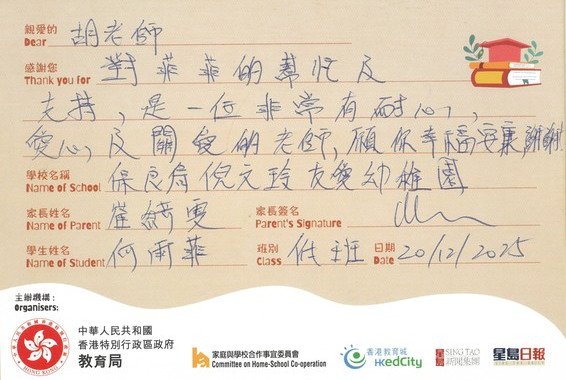 親愛的
Dear 胡老師
感謝您
Thank you for 對菲菲的幫忙及
支持，是一位非常有耐心，
愛心，及關愛的老師，願你幸福安康，謝謝！
學校名稱
Name of School 保良局倪文玲友愛幼稚園
家長姓名 家長簽名
Name of Parent 崔綺雯 Parent's Signature
學生姓名 班別 日期
Name of Student 何雨菲 Class 低班 Date 20/12/2025
主辦機構：
Organisers:
中華人民共和國
香港特別行政區政府
教育局
HONG KONG
家庭與學校合作事宜委員會
Committee on Home-School Co-operation
香港教育城
HKedCity
SING TAO
新聞集團
星島日報